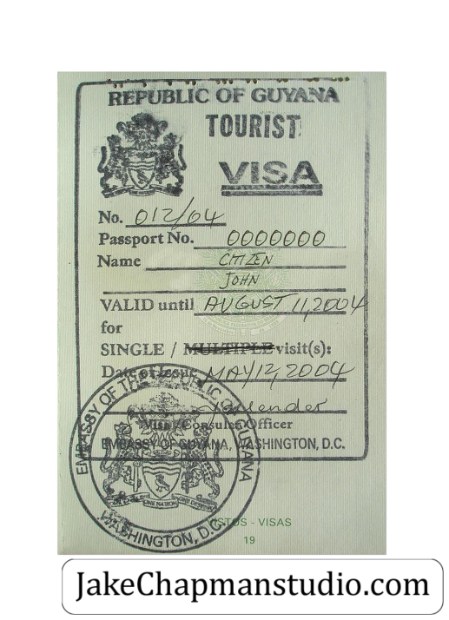 REPUBLIC OF GUYANA
TOURIST
VISA
No. 012/64
Passport No. 0000000
Name CITIZEN
JOHN
VALID until AUGUST 11, 2004
for
SINGLE / MULTIPLE visit(s):
Date of Issue MAY 12, 2004
Visa / Consular Officer
EMBASSY OF GUYANA, WASHINGTON, D.C.
EMBASSY OF THE REPUBLIC OF GUYANA
WASHINGTON, D.C.
- VISAS
19
JakeChapmanstudio.com